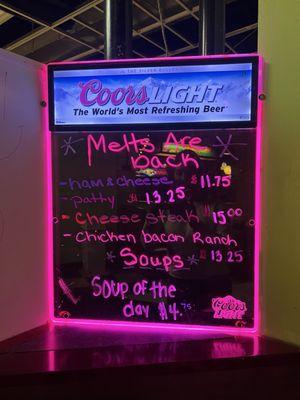 THE SILVER BULLET
Coors LIGHT
The World's Most Refreshing Beer
Melts Are
back
- ham & cheese $11.75
- patty $13.25
- Cheese steak $15.00
- Chicken bacon Ranch
$13.25
Soups
Soup of the
day $4.75
Coors
LIGHT